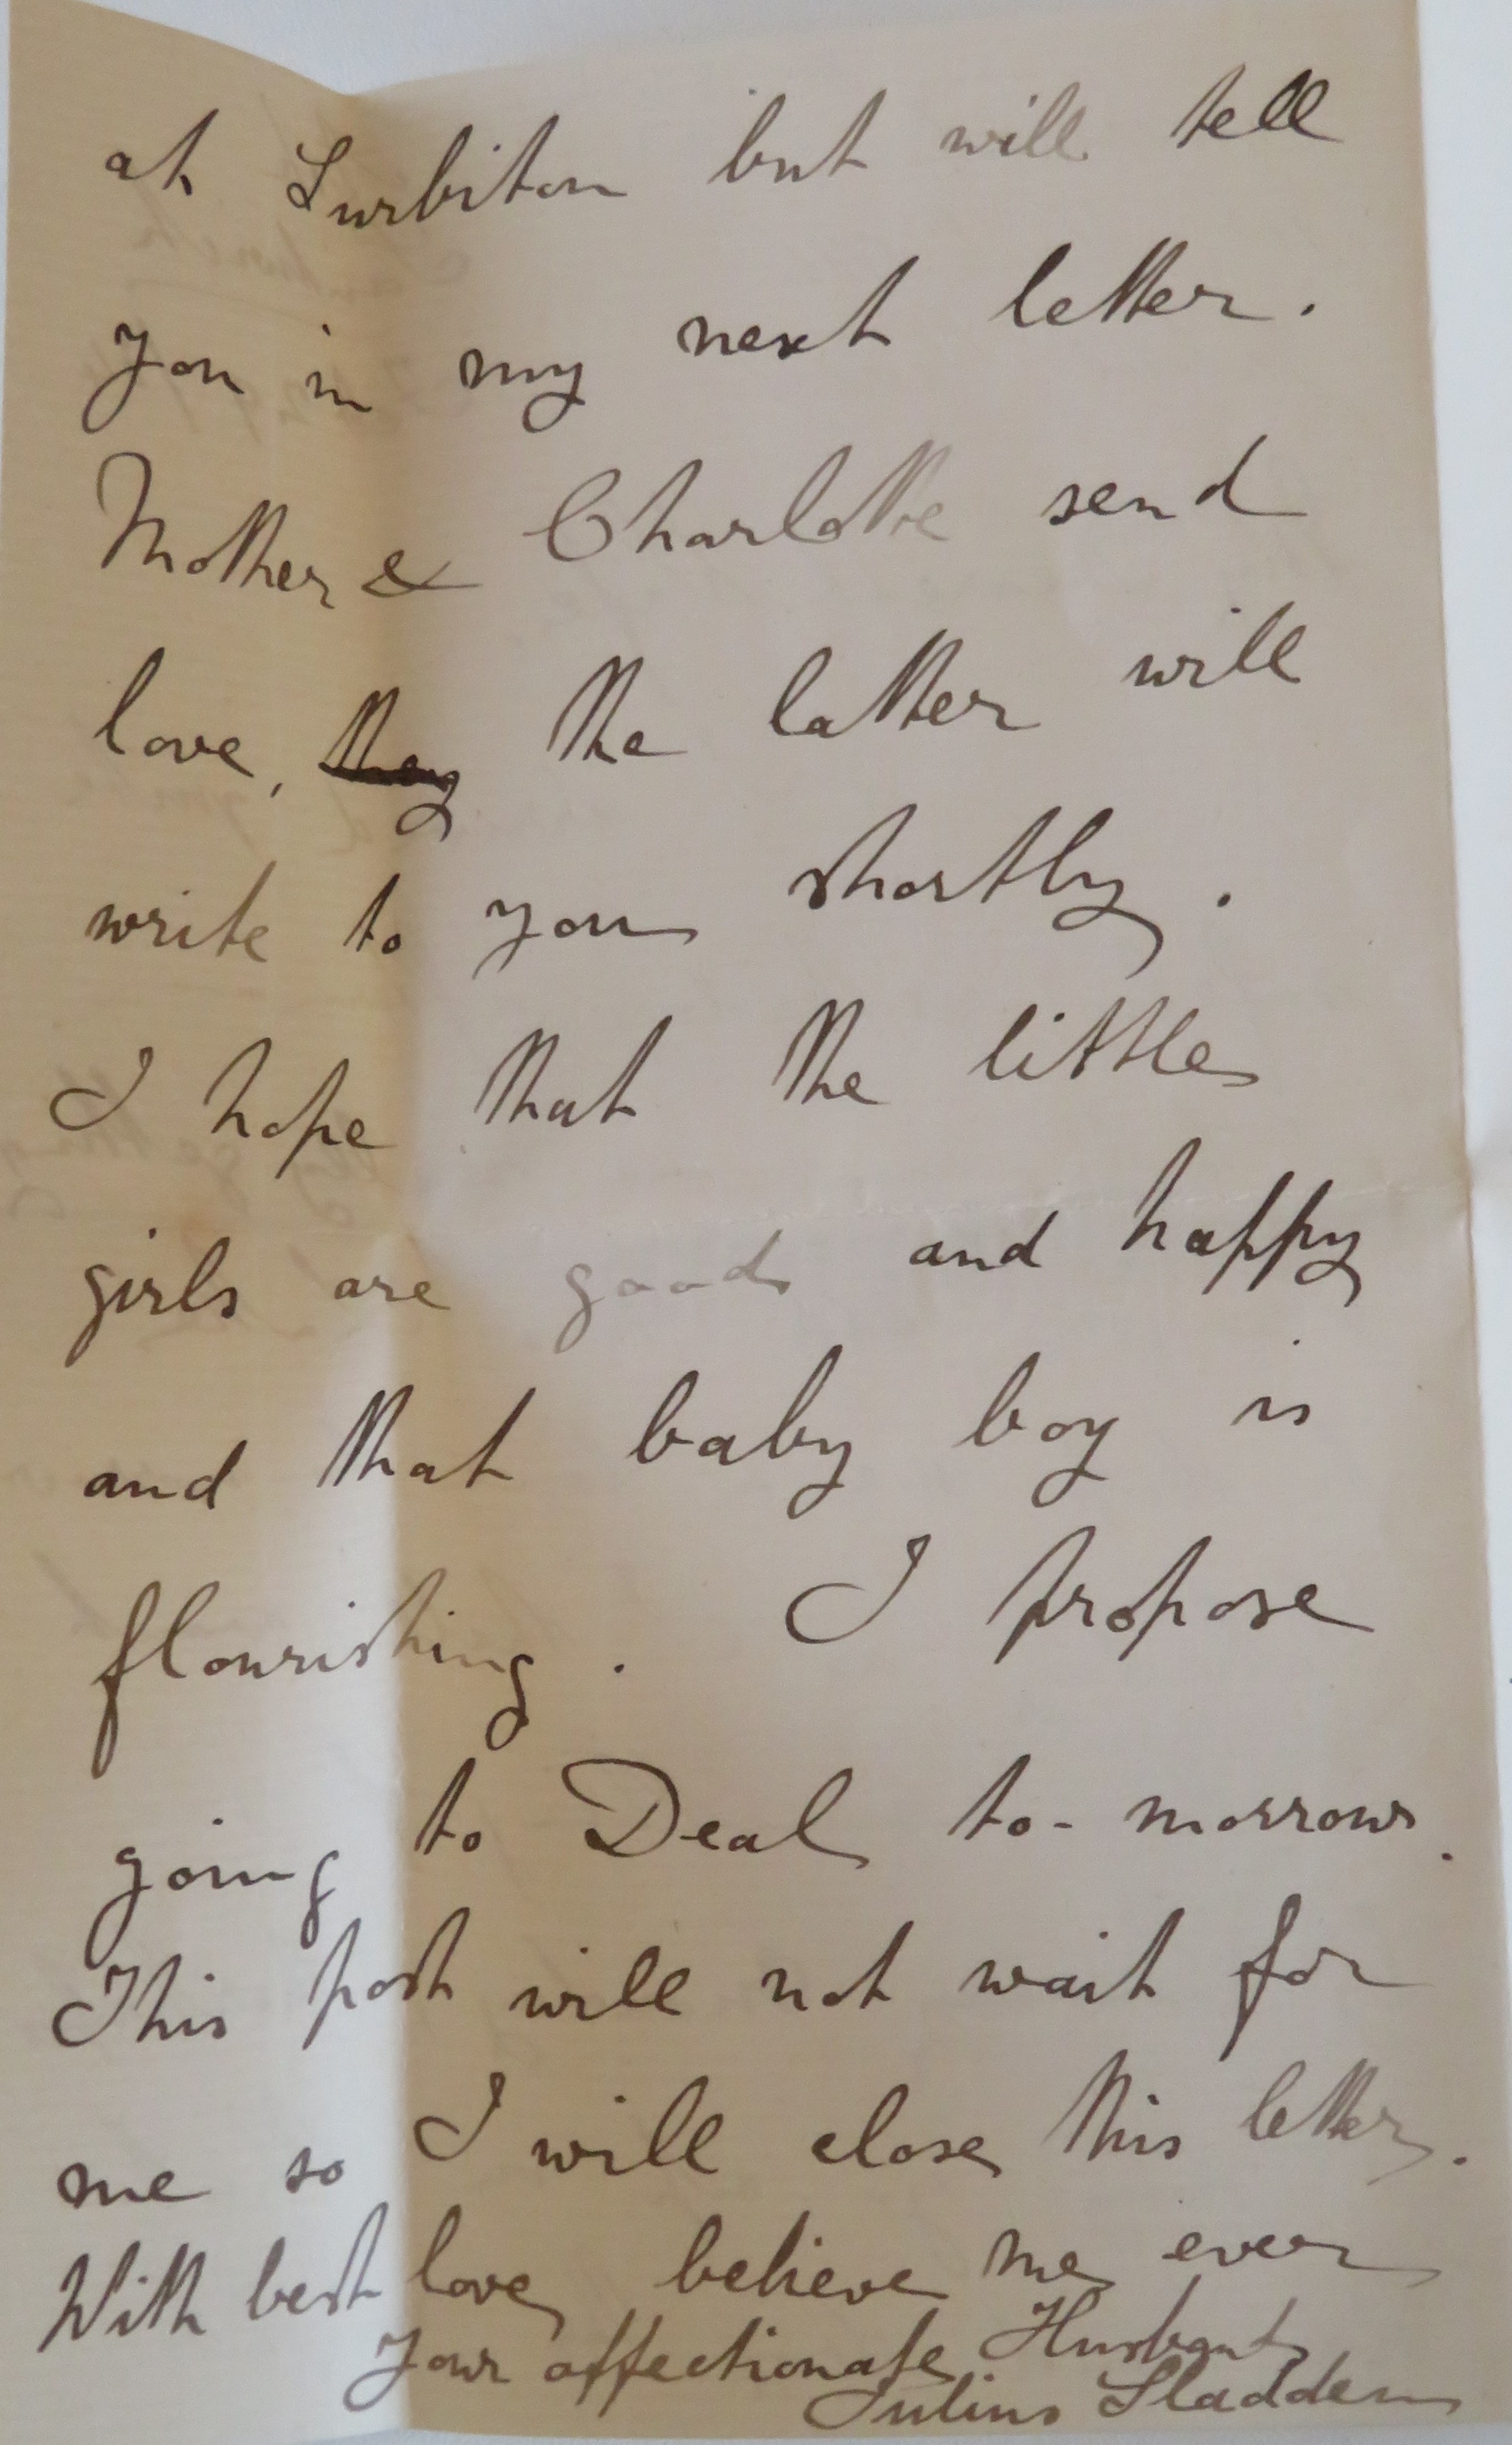 at Surbiton but will tell
you in my next letter.
Mother & Charlotte send
love, they the latter will
write to you shortly.
I hope that the little
girls are good and happy
and that baby boy is
flourishing. I propose
going to Deal to-morrow.
This post will not wait for
me so I will close this letter.
With best love, believe me ever
Your affectionate Husband,
Julius Sladden